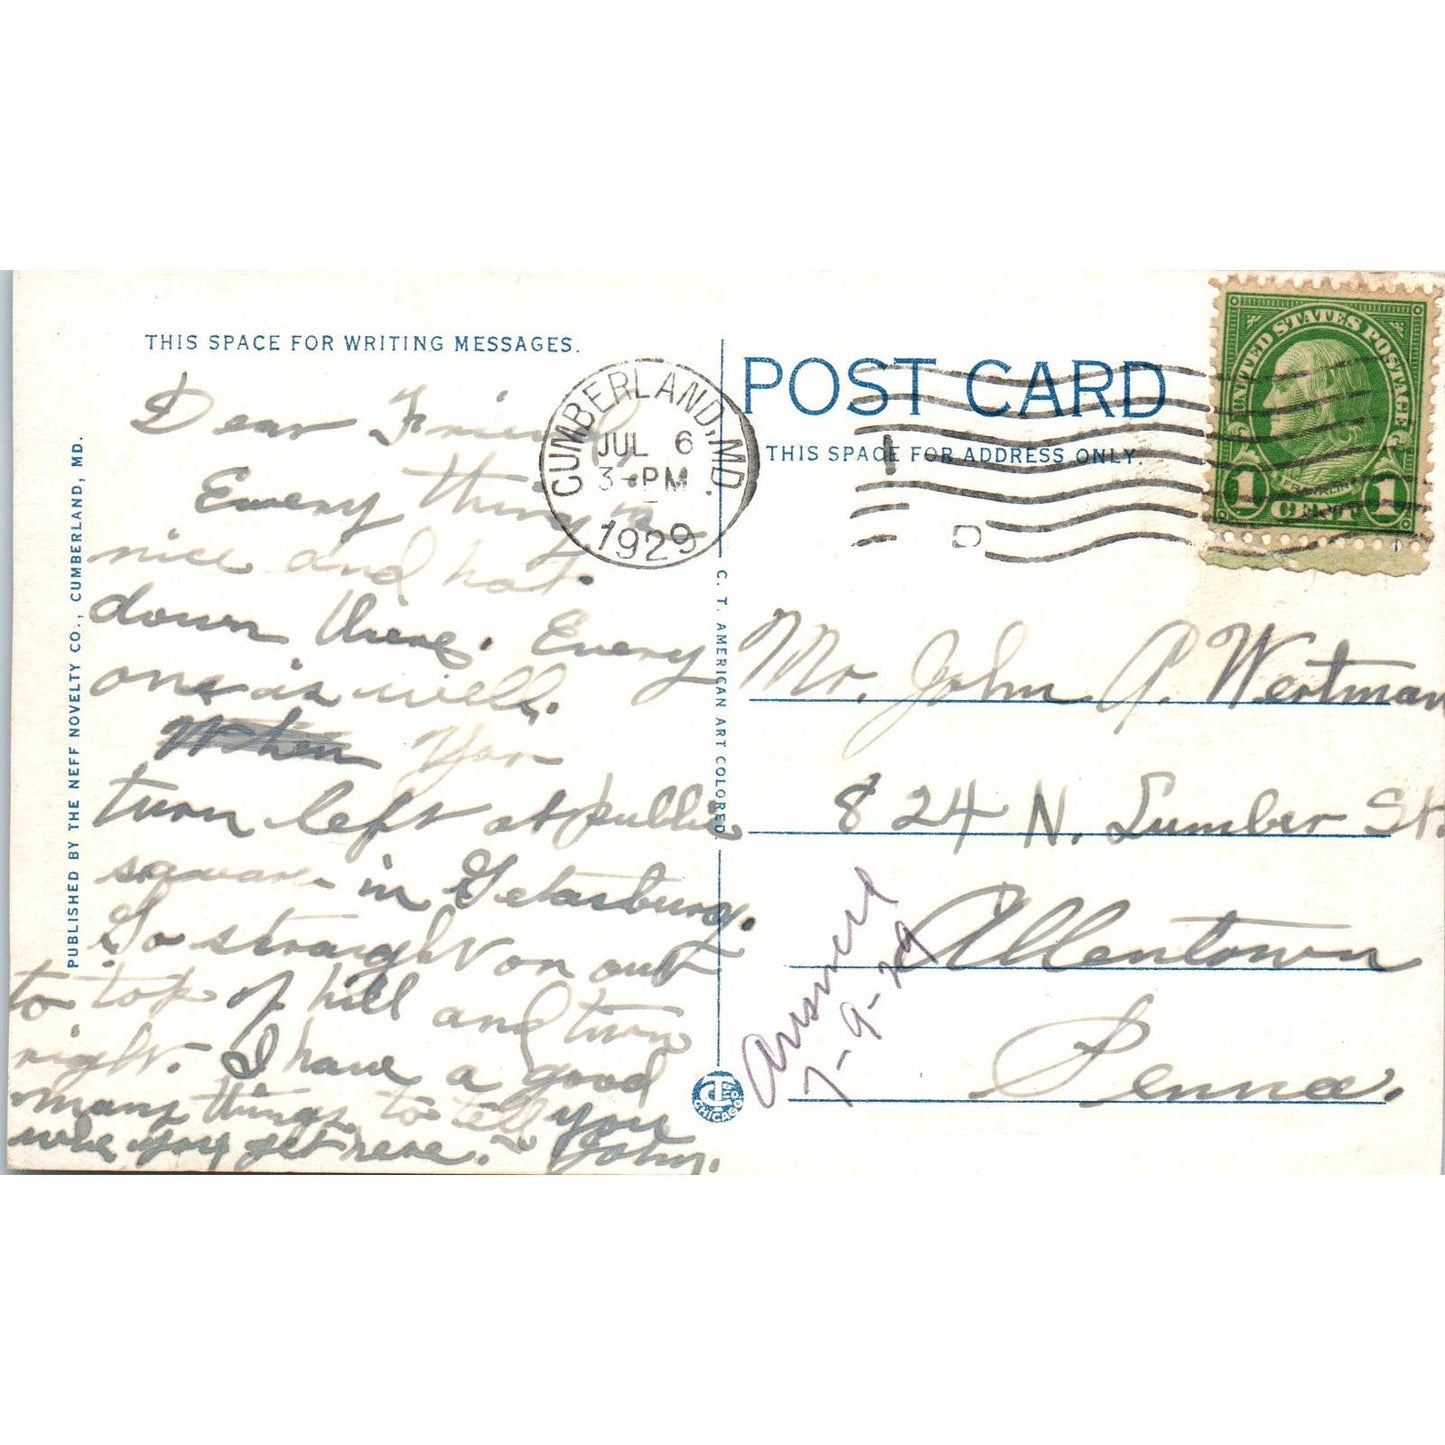 THIS SPACE FOR WRITING MESSAGES.
Dear Friend
Every thing is
nice and hot
down there. Every
one is well.
When You
turn left at public
square in Getasburg.
Go straight on out
to top of hill and turn
right. I have a good
many things to tell you
when you get here. John.
PUBLISHED BY THE NEFF NOVELTY CO., CUMBERLAND, MD.
CUMBERLAND, MD.
JUL 6
3-PM
1929
C. T. AMERICAN ART COLORED
CHICAGO
POST CARD
THIS SPACE FOR ADDRESS ONLY.
UNITED STATES POSTAGE
FRANKLIN
1 CENT 1
Mr. John A. Wertman
824 N. Lumber St.
Allentown
Penna.
Answered
7-9-29